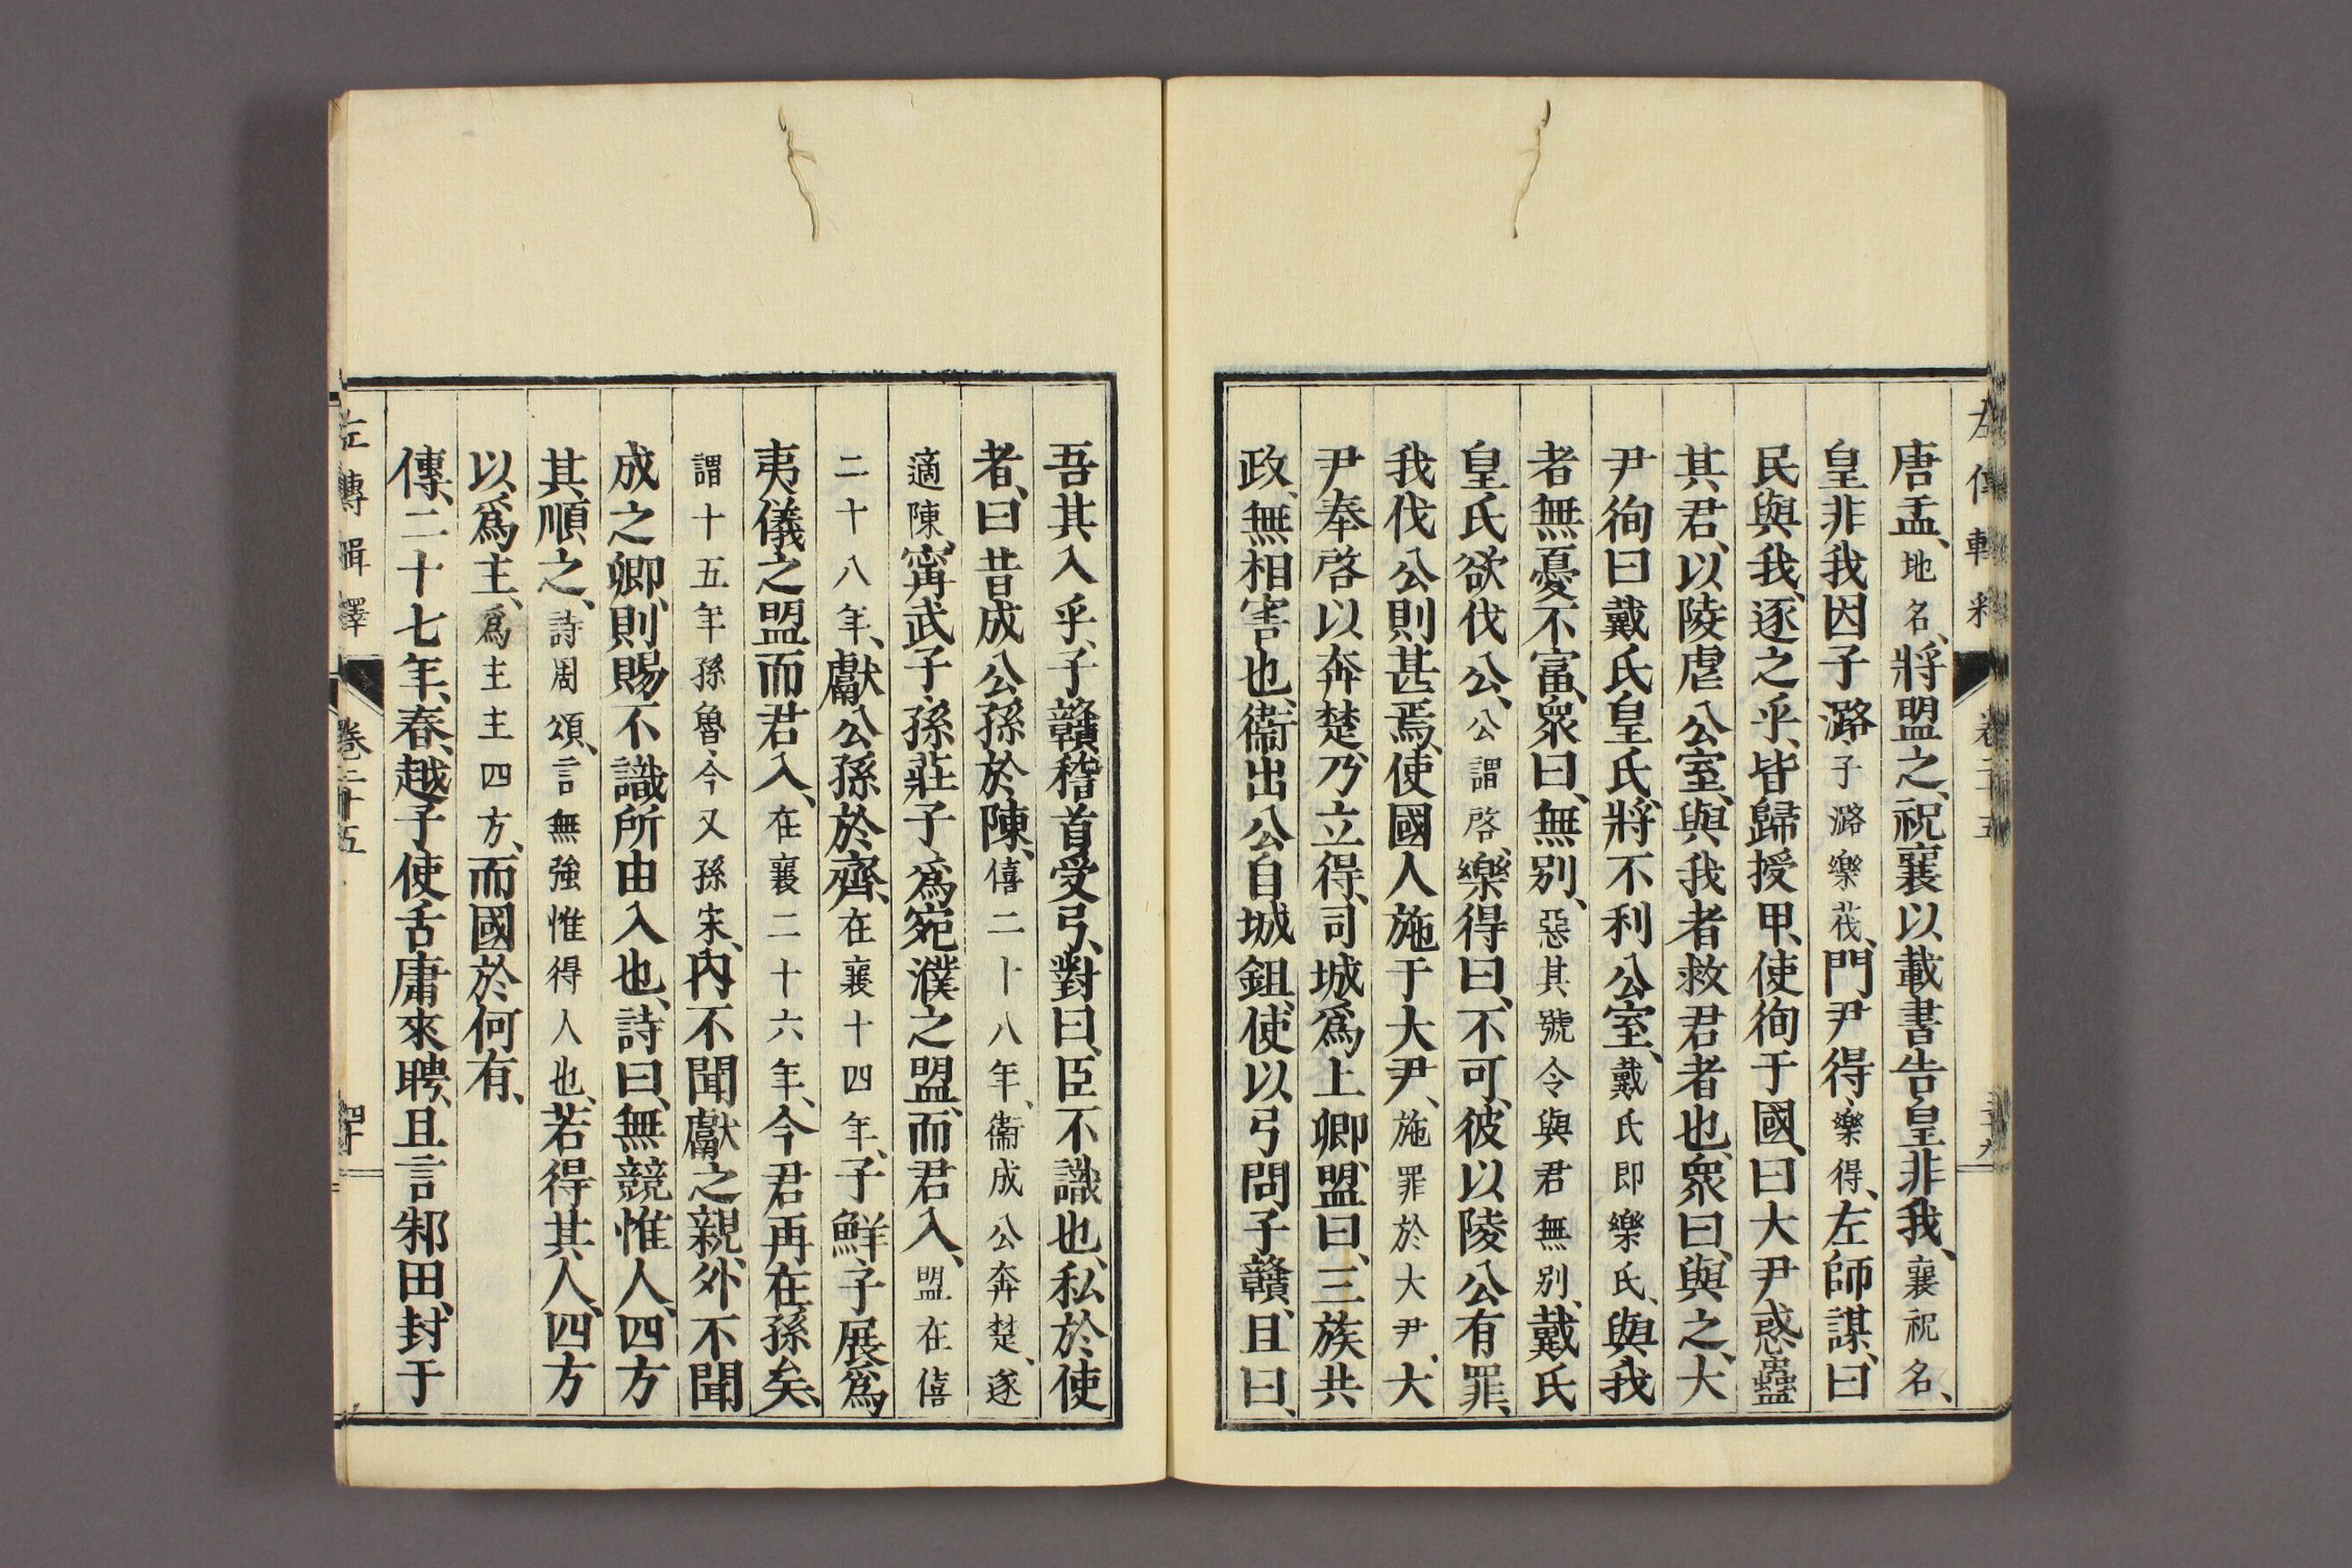 唐盂、地名、將盟之、祝襄以載書告皇非我、襄祝名、
皇非我因子潞、子潞樂茷、門尹得、樂得、左師謀、曰
民與我、逐之乎、皆歸授甲、使徇于國、曰大尹惑蠱
其君、以陵虐公室、與我者救君者也、衆曰、與之、大
尹徇曰戴氏皇氏、將不利公室、戴氏即樂氏、與我
者無憂不富、衆曰、無別、惡其號令與君無別、戴氏
皇氏欲伐公、公謂啓、樂得曰、不可、彼以陵公有罪、
我伐公則甚焉、使國人施于大尹、施罪於大尹、大
尹奉啓以奔楚、乃立得、司城爲上卿、盟曰、三族共
政、無相害也、衞出公自城鉏、使以弓問子贛、且曰、
吾其入乎、子贛稽首受弓、對曰、臣不識也、私於使
者、曰昔成公孫於陳、僖二十八年、衞成公奔楚、遂
適陳、甯武子、孫莊子、爲宛濮之盟、而君入、盟在僖
二十八年、獻公孫於齊、在襄十四年、子鮮、子展爲
夷儀之盟而君入、在襄二十六年、今君再在孫矣、
謂十五年孫魯、今又孫宋、内不聞獻之親、外不聞
成之卿、則賜不識所由入也、詩曰、無競惟人、四方
其順之、詩周頌、言無強惟得人也、若得其人、四方
以爲主、爲主主四方、而國於何有、
傳、二十七年、春、越子使舌庸來聘、且言邾田、封于
左傳輯釋 卷二十五 四十